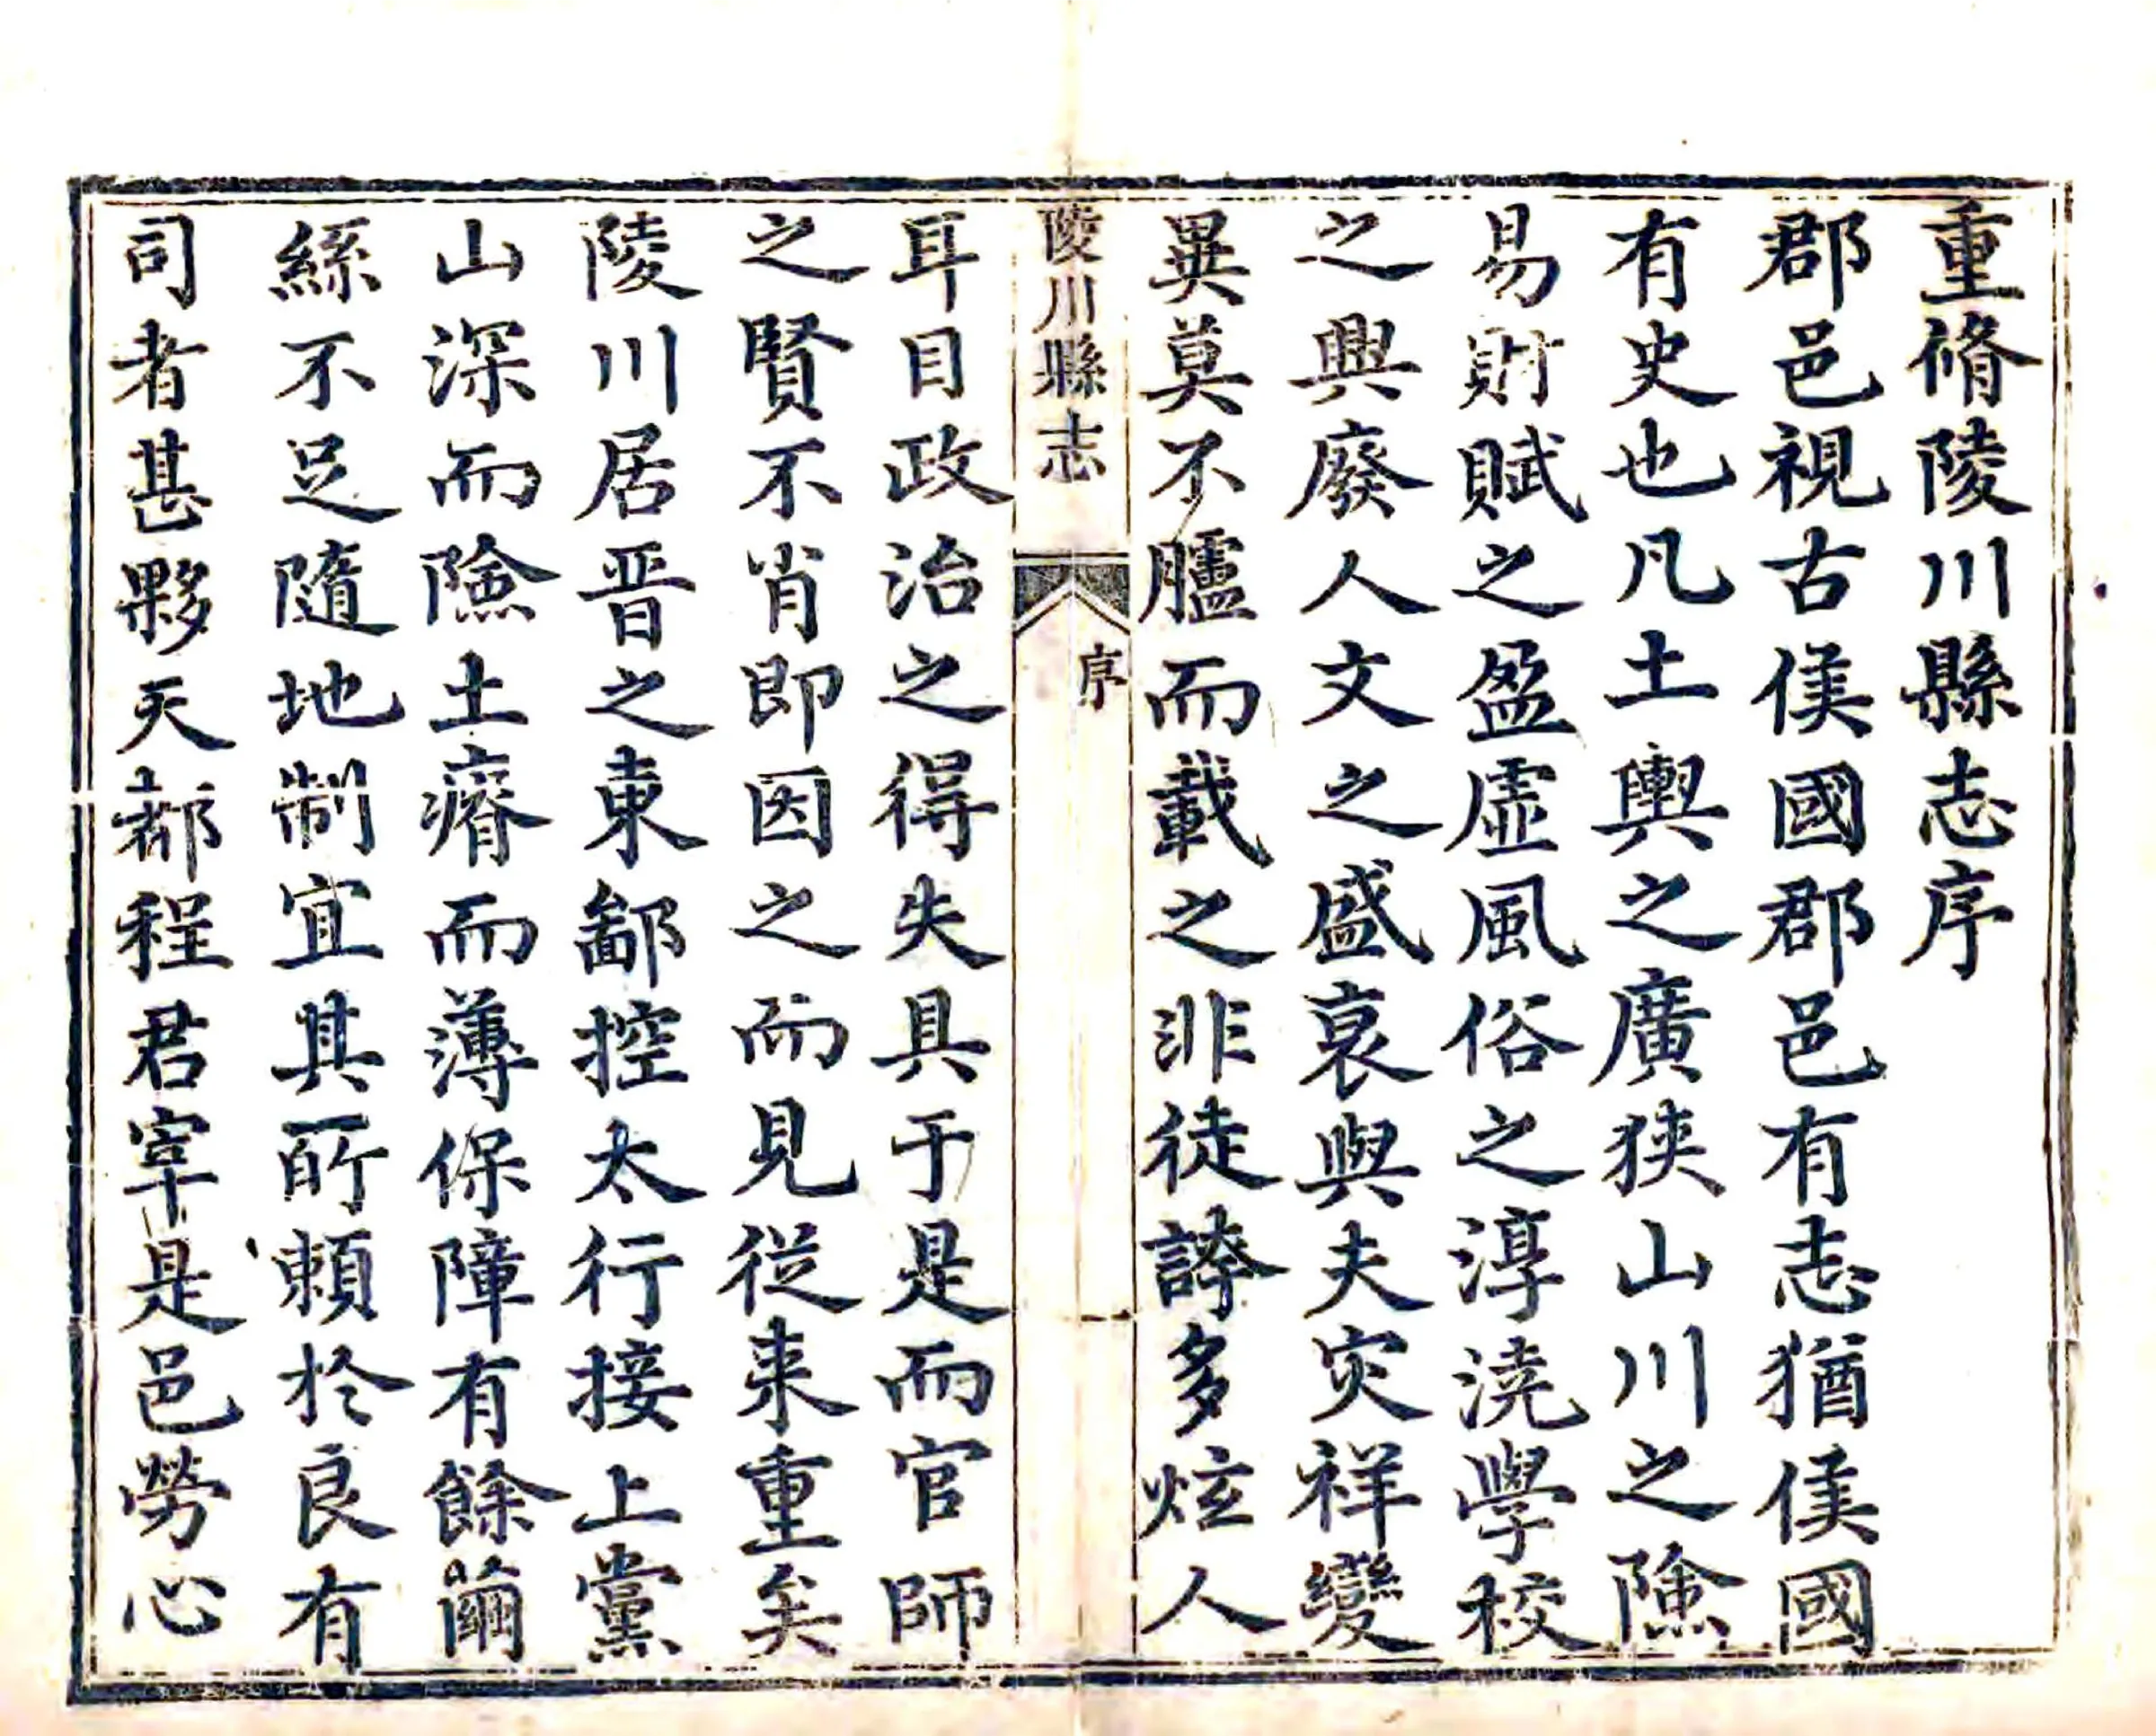 重脩陵川縣志序
郡邑視古侯國郡邑有志猶侯國
有史也凡土輿之廣狹山川之險
易財賦之盈虛風俗之淳澆學校
之興廢人文之盛衰與夫灾祥變
異莫不臚而載之非徒誇多炫人
陵川縣志
序
一
耳目政治之得失具于是而官師
之賢不肖即因之而見從来重矣
陵川居晋之東鄙控太行接上黨
山深而險土瘠而薄保障有餘繭
絲不足隨地制宜其所賴於良有
司者甚夥天都程君宰是邑勞心